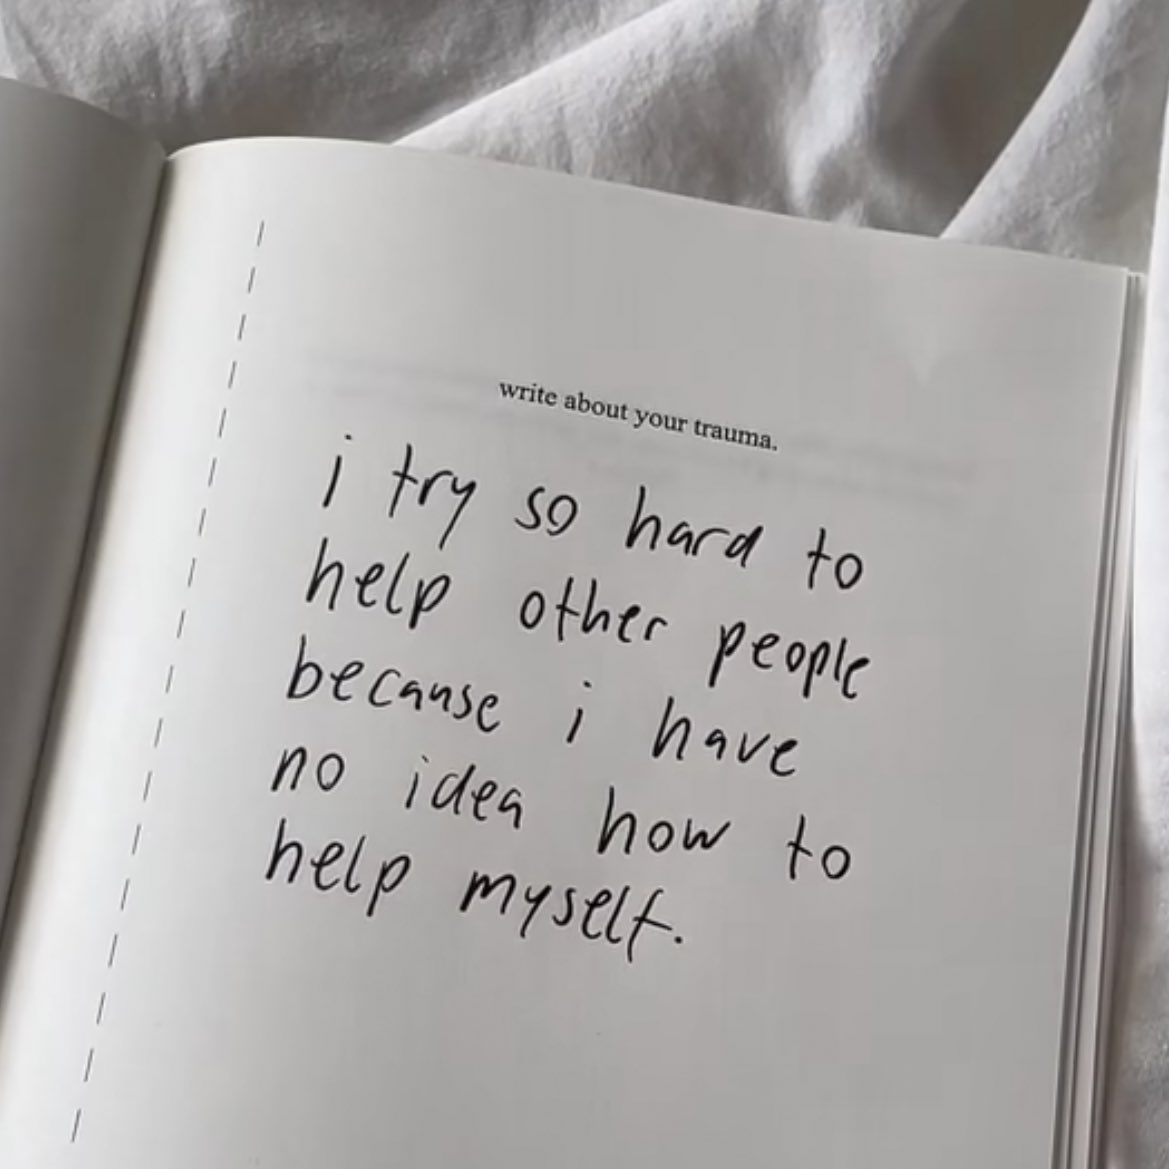 write about your trauma.
i try so hard to
help other people
because i have
no idea how to
help myself.